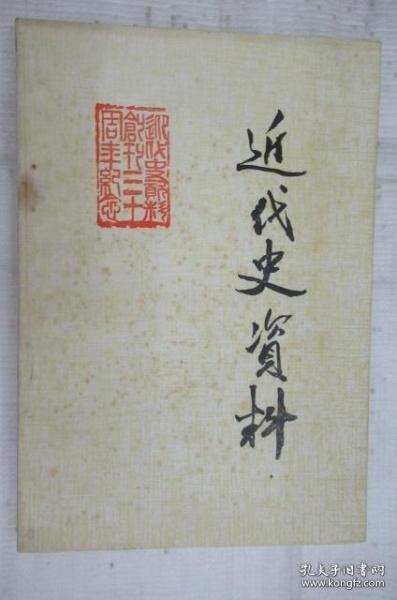 近代史资料
近代史资料
创刊三十
周年纪念
孔夫子旧书网
www.kongfz.com